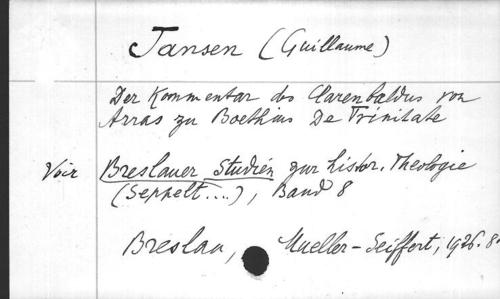 Jansen (Guillaume)
Der Kommentar des Clarenbaldus von
Arras zu Boethius De Trinitate
Voir Breslauer Studien zur histor. Theologie
(Seppelt....), Band 8
Breslau, Mueller-Seiffert, 1926. 8°